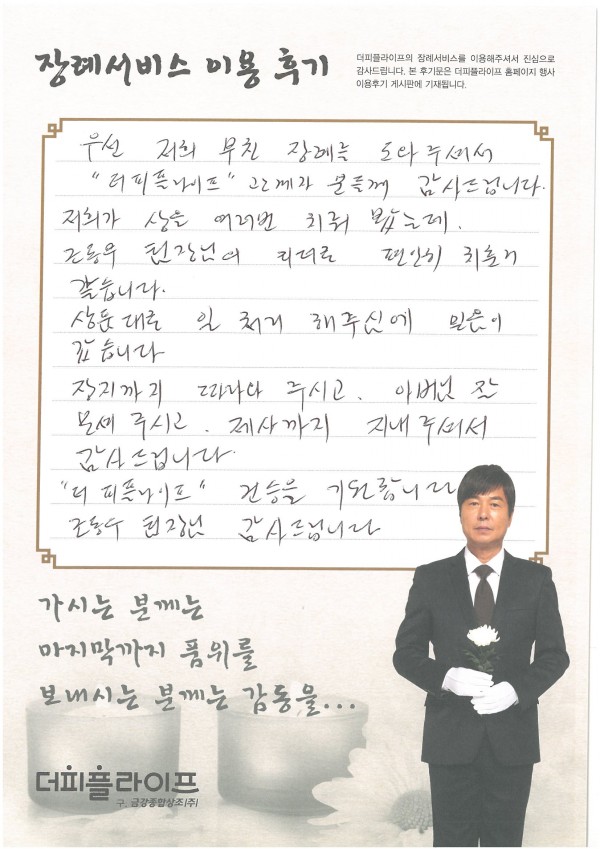 장례서비스 이용 후기
더피플라이프의 장례서비스를 이용해주셔서 진심으로
감사드립니다. 본 후기문은 더피플라이프 홈페이지 행사
이용후기 게시판에 기재됩니다.
우선 저희 부친 장례를 도와주셔서
"더피플라이프" 관계자 분들께 감사드립니다.
저희가 상을 여러번 치뤄 봤는데.
조동우 팀장님의 리더로 편안히 치른거
같습니다.
상듣대로 일 처리 해주신에 믿음이
갔습니다
장지까지 따라와 주시고. 아버님 잘
모셔 주시고. 제사까지 지내주셔서
감사드립니다.
"더 피플라이프" 건승을 기원합니다
팀장님 감사드립니다
가시는 분께는
마지막까지 품위를
보내시는 분께는 감동을...
더피플라이프
구. 금강종합상조(주)